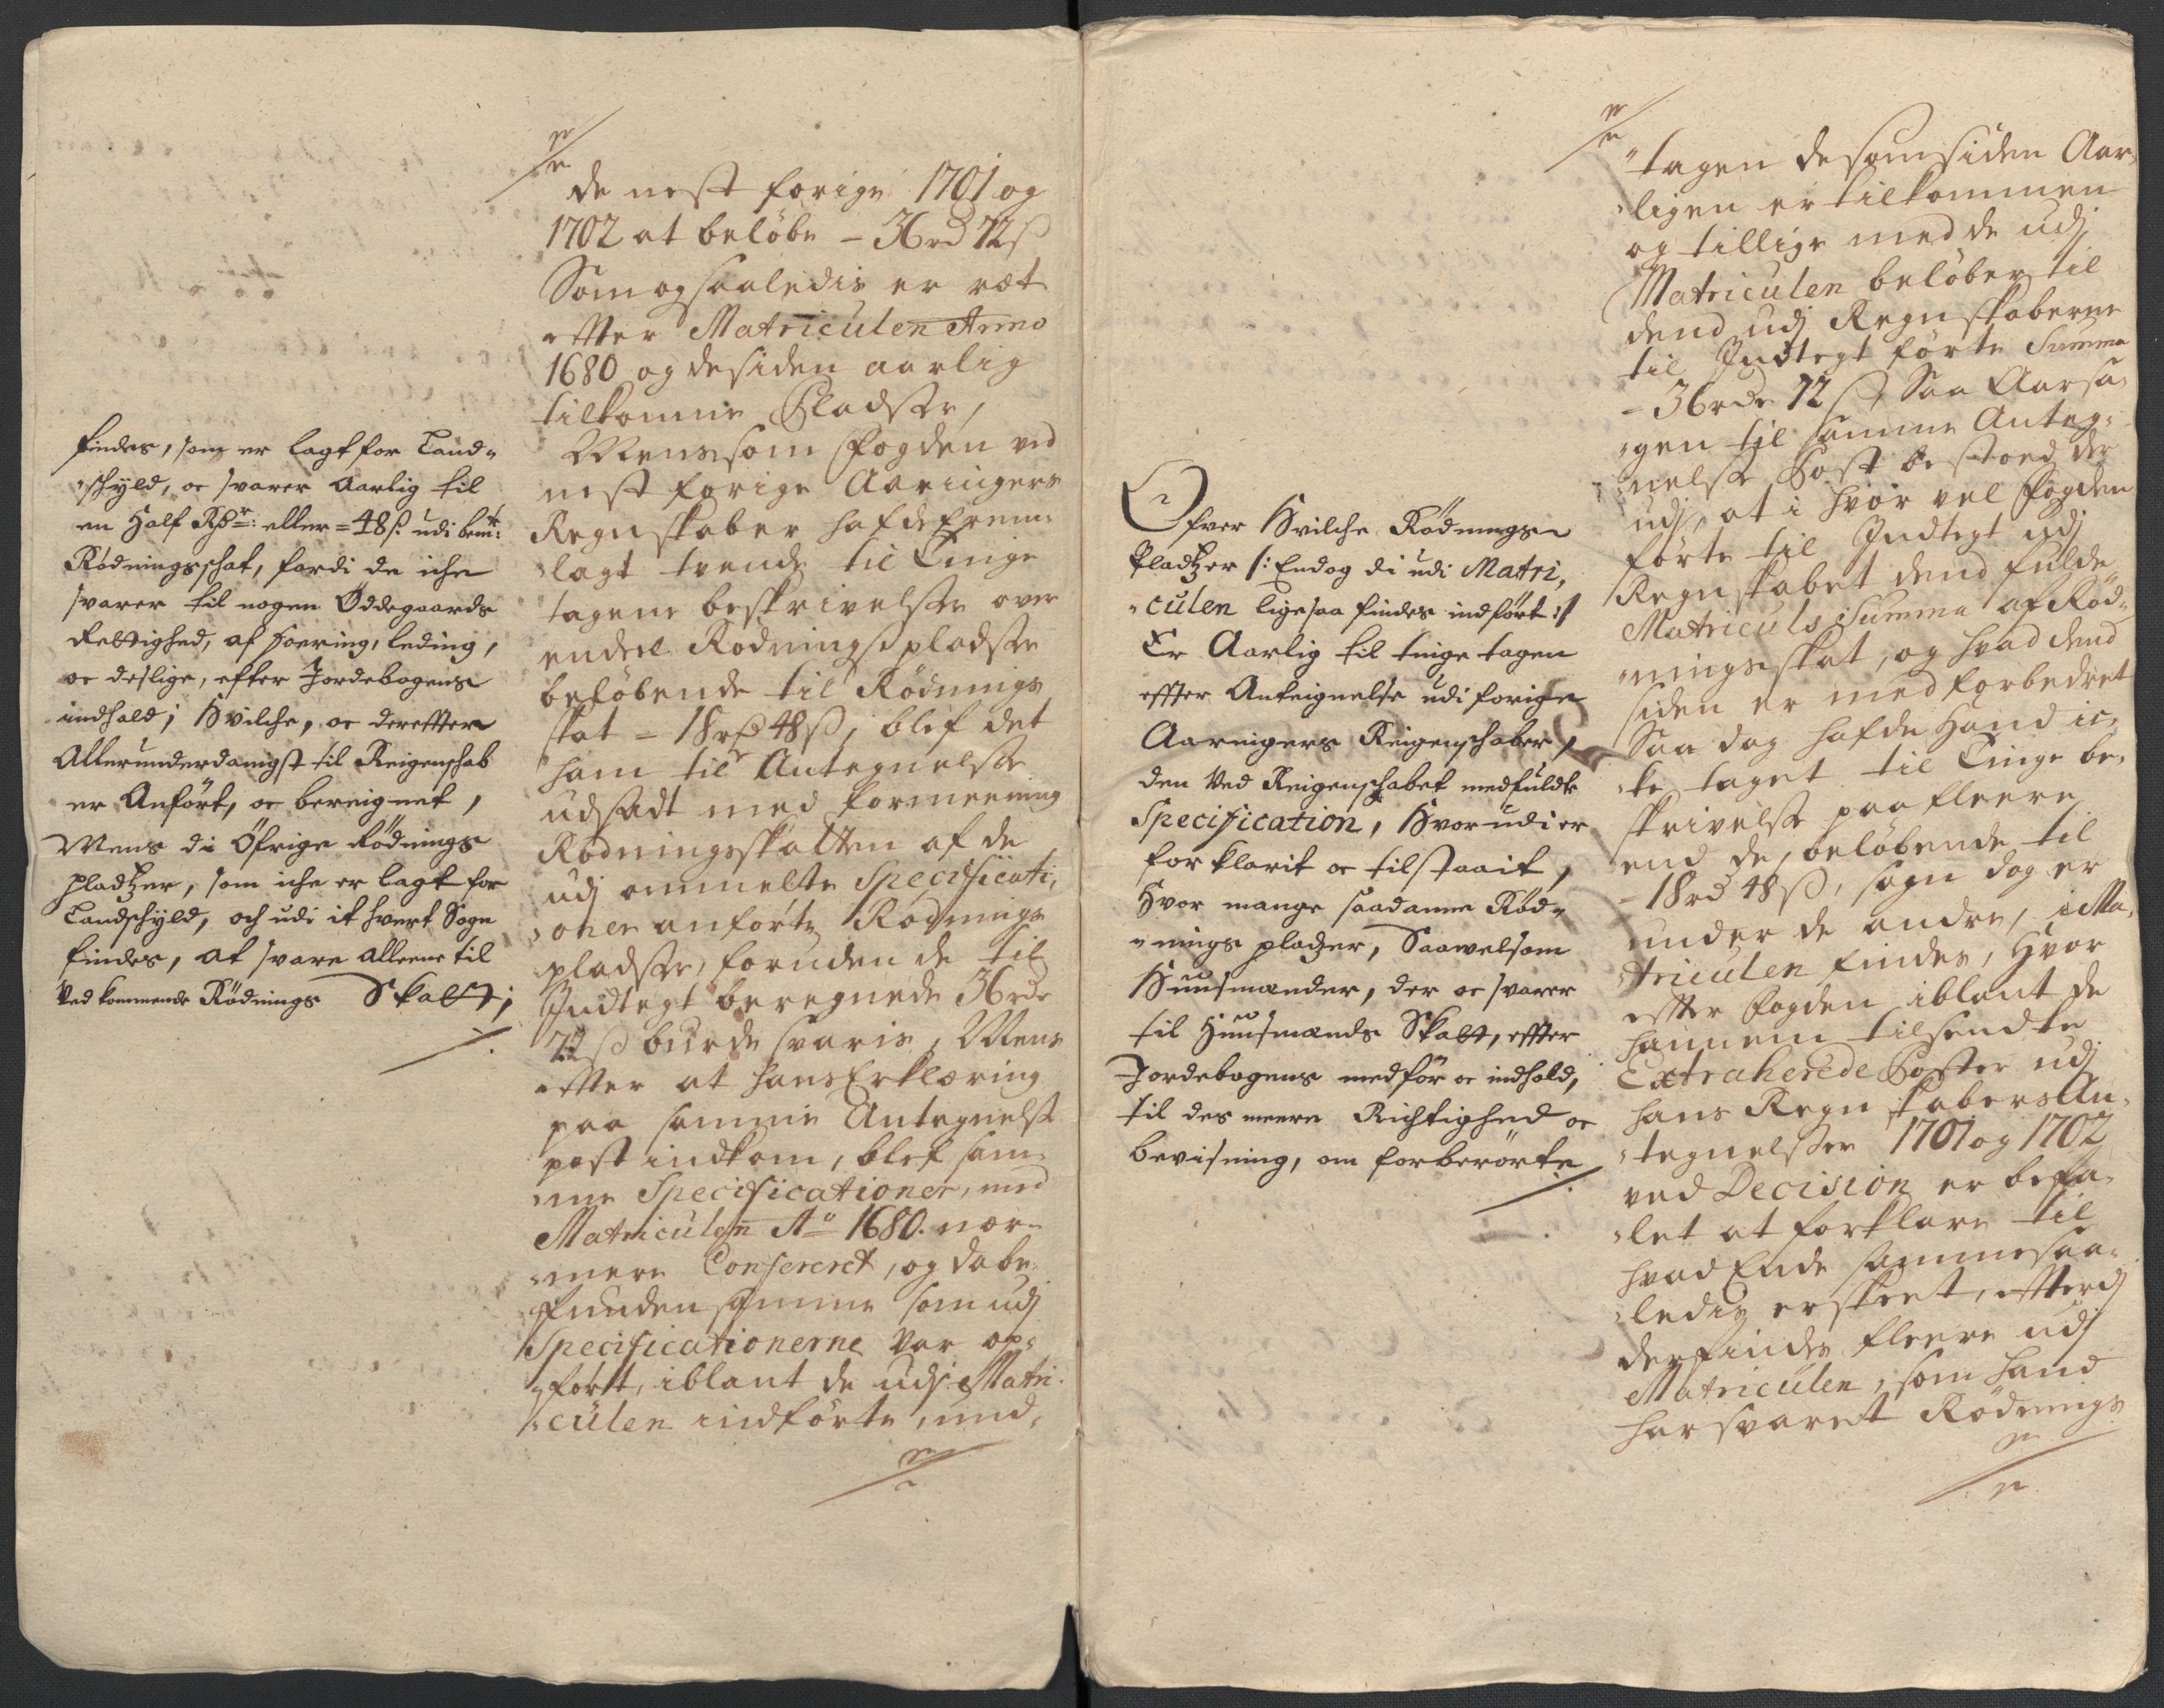 findes, som er lagt for Land-
schyld, oc svarer Aarlig til
en Half Rdr: eller = 48 s. udi bem:te
Rødningsschat, fordi de iche
svarer til nogen Øddegaards
Rettighed, af foering, leding,
oc deslige, efter Jordebogens
indhald; Hvilche, oc derefter
Allerunderdanigst til Reigenschab
er Anført, oc bereignet,
Mens di Øfrige Rødnings
pladtzer, som iche er lagt for
Landschyld, och udi it hvert Sogn
findes, at svare alleene til
ved kommende Rødnings Skatt;
de nest forige 1701 og
1702 at beløbe - 36 rd 72 ß
Som og saaledis er ræt
efter Matriculen Anno
1680 og de siden aarlig
tilkomne Pladsse,
Mens som Fogden ved
nest forige Aaringers
Regnskaber hafde frem-
lagt tvende til Tinge
tagene beskrivelsse over
endeel Rødningspladsse
beløbende til Rødnings
skat - 18 rd 48 ß, blef det
ham til Antegnelsse
udsadt med formeening
Rødningsskatten af de
udj ommelte Specificati-
oner anførte Rødnings
pladsse, foruden de til
Indtegt beregnede 36 rdr
72 ß burde svaris, Mens
efter at hans Erklæring
paa samme Antegnelse
post indkom, blef sam-
me Specificationer, med
Matriculen Ao 1680. nær-
mere Confereret, og da be-
funden samme som udj
Specificationerne var op-
ført, iblant de udj Matri-
culen indførte, und-
Ofver Hvilche Rødnings
Pladtzer /: Endog di udi Matri-
culen ligesaa findes indført :/
Er Aarlig til tinge tagen
effter Anteignelse udi forige
Aareigers Reigenschaber,
den ved Reigenschabet medfuldte
Specification, Hvorudi er
forklarit oc tilstaait,
Hvor mange saadanne Rød-
nings pladzer, Saavelsom
Huusmænder, der oc svarer
til Huusmands Skatt, effter
Jordebogens medfør oc indhold,
til des meere Richtighed oc
bevisning, om forberørte
tagen de som siden Aar-
ligen er tilkommen
og tillige med de udj
Matriculen beløber til
dend udj Regnskaberne
til Indtegt førte Summa
- 36 rdr 72 ß, Saa Aarsa-
gen til samme Anteg-
nelse Post bestoed der
udj, at i hvor vel Fogden
førte til Indtegt udj
Regnskabet dend fulde
Matriculs Summa af Rød-
ningsskat, og hvad dend
siden er med forbedret
Saa dog hafde Hand ic-
ke taget til Tinge be-
skrivelse paa fleere
end de, beløbende til
- 18 rd 48 ß, som dog er
under de andre, i Ma-
triculen findes, Hvor
efter Fogden iblant de
hannem tilsendte
Extraherede Poster udj
hans Regnskabers An-
tegnelsser 1701 og 1702
ved Decision er befa-
let at forklare til
hvad Ende samme saa-
ledis er skeet, efterdj
der findes fleere udj
Matriculen, som hand
har svaret Rødnings